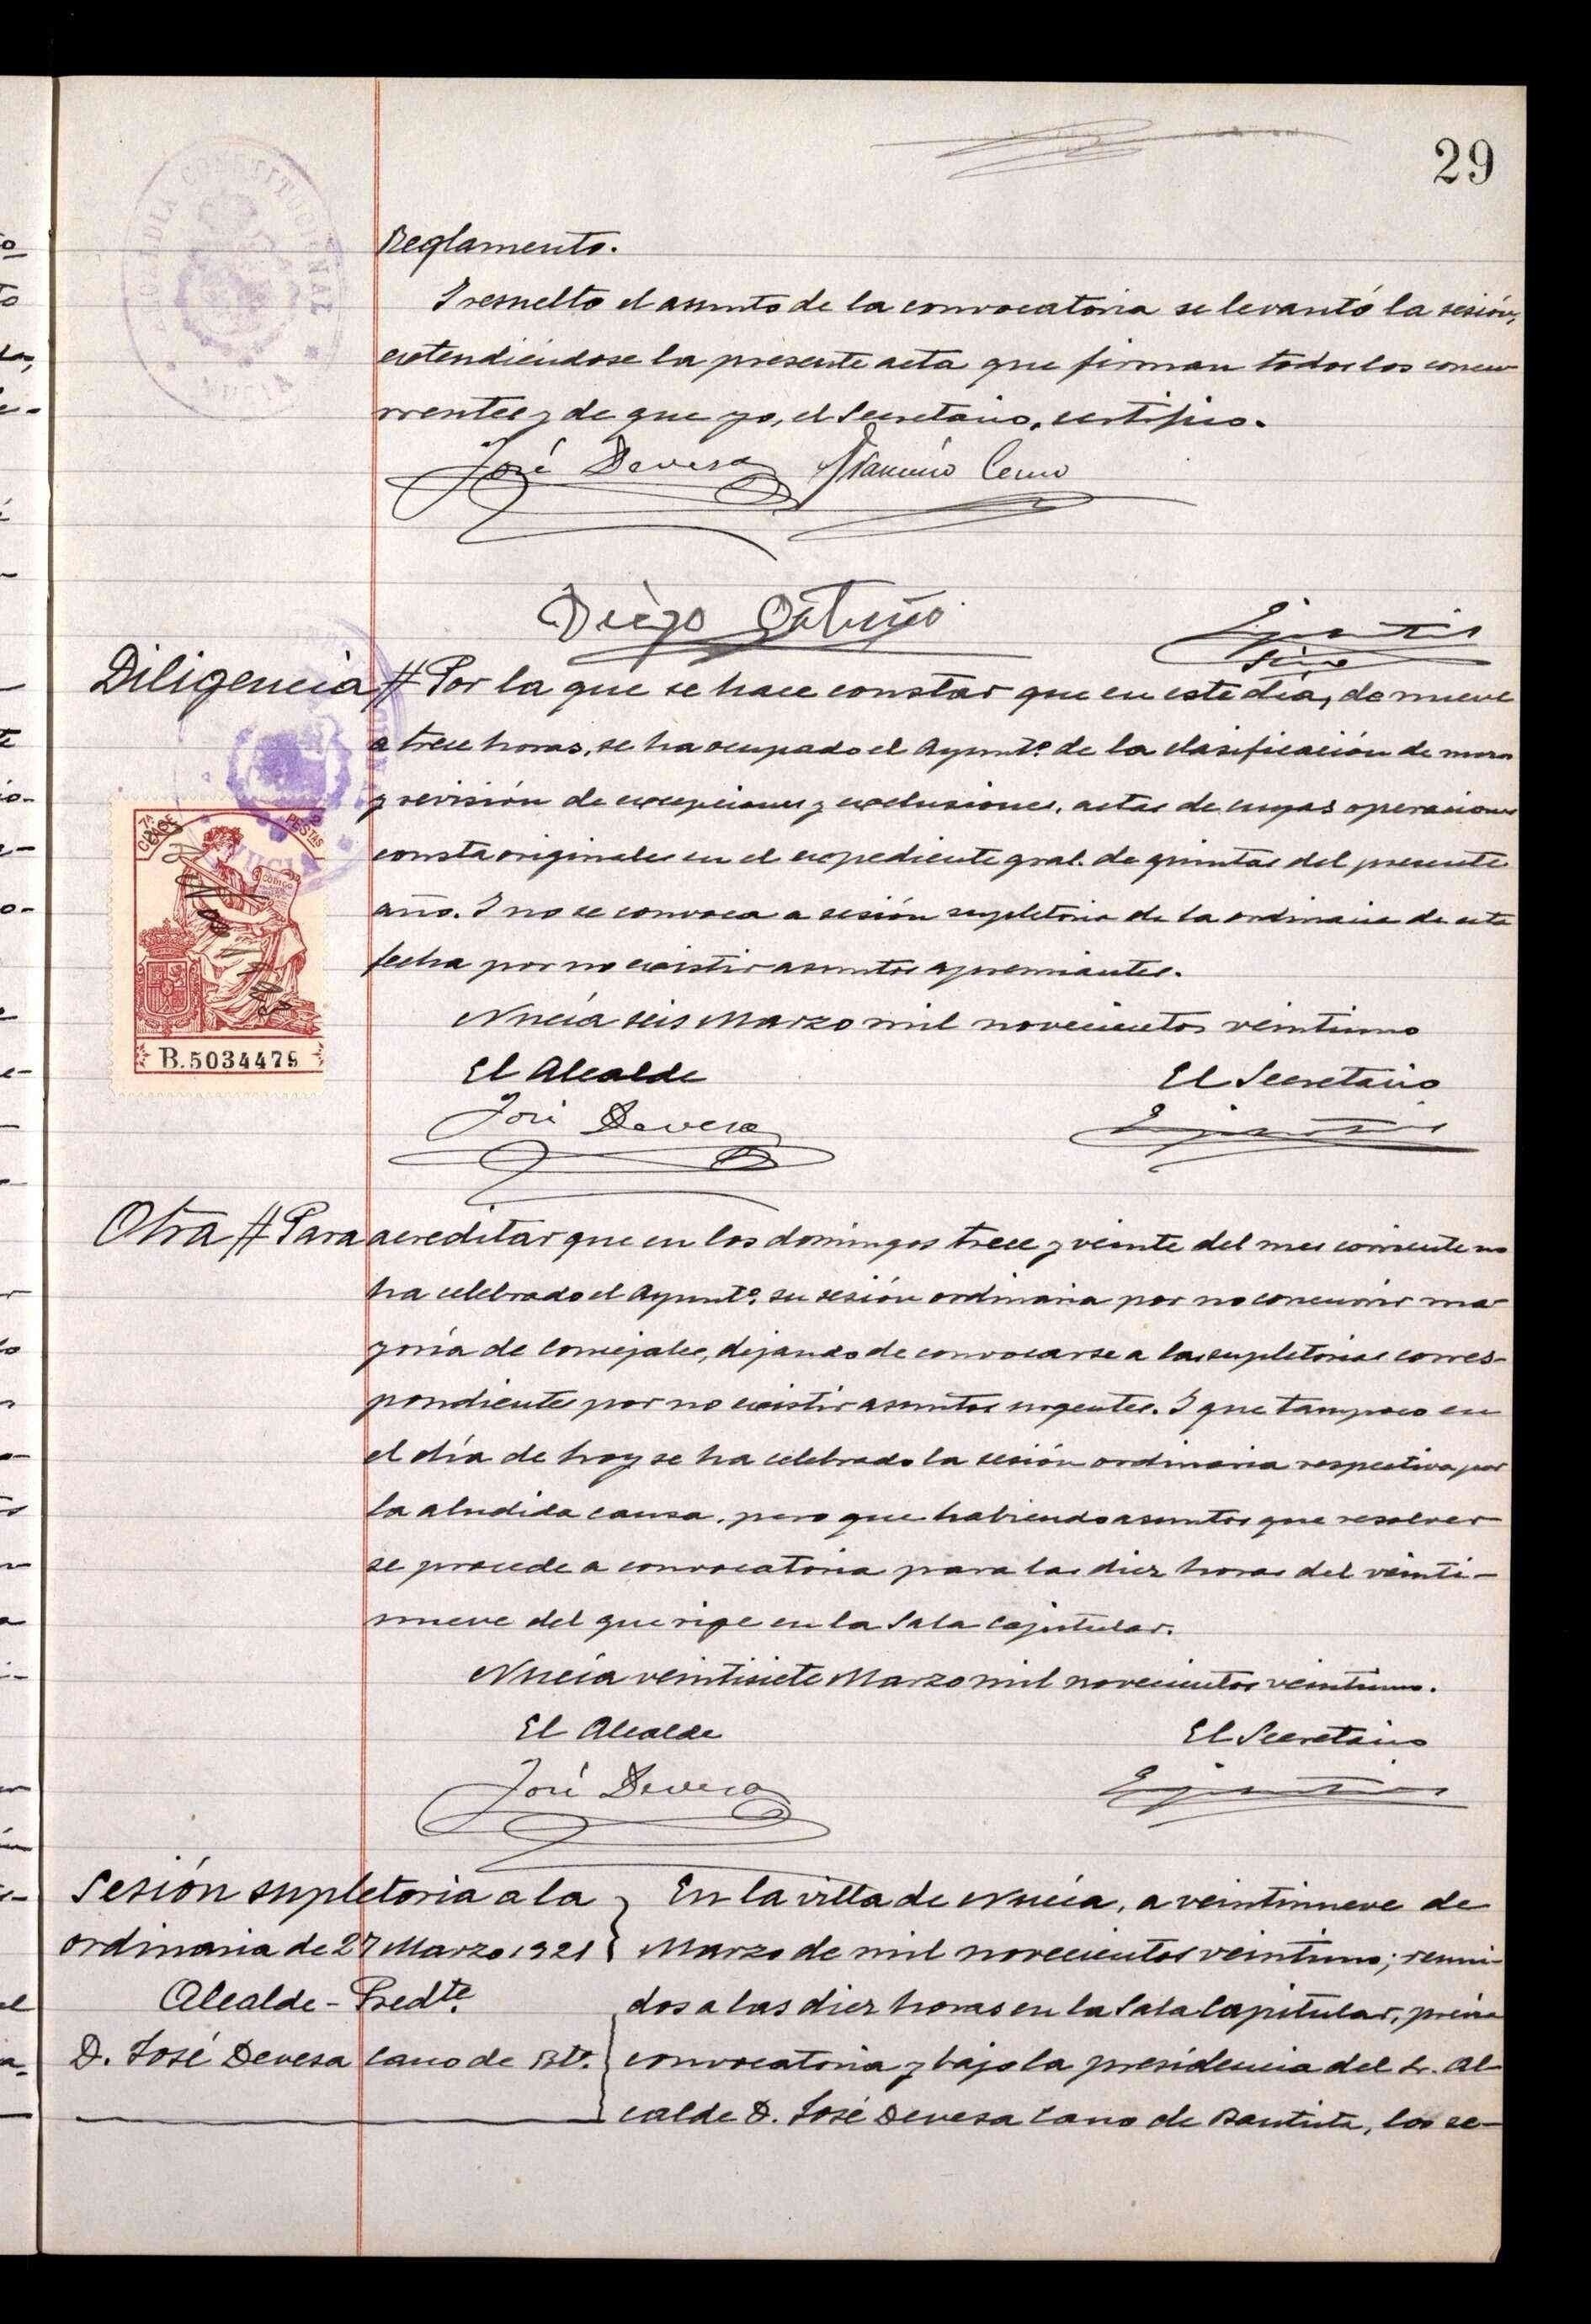 29
ALCALDIA CONSTITUCIONAL
NUCIA
Reglamento.
I resuelto el asunto de la convocatoria se levantó la sesión,
extendiéndose la presente acta que firman todos los concu-
rrentes y de que yo, el Secretario, certifico.
José Devesa
Diego Ortuño
Diligencia # Por la que se hace constar que en este día, de nueve
a trece horas, se ha ocupado el Ayuntº. de la clasificación de mozos
y revisión de excepciones y exclusiones, actas de cuyas operaciones
consta originales en el expediente gral. de quintas del presente
año. I no se convoca a sesión supletoria de la ordinaria de esta
fecha por no existir asuntos apremiantes.
7ª CLASE PESETAS
CODIGO
B.5034479
Nucía seis Marzo mil novecientos veintiuno
El Alcalde El Secretario
José Devesa
Otra # Para acreditar que en los domingos trece y veinte del mes corriente no
ha celebrado el Ayuntº. su sesión ordinaria por no concurrir ma-
yoría de Concejales, dejando de convocarse a las supletorias corres-
pondientes por no existir asuntos urgentes. I que tampoco en
el día de hoy se ha celebrado la sesión ordinaria respectiva por
la aludida causa, pero que habiendo asuntos que resolver
se procede a convocatoria para las diez horas del veinti-
nueve del que rige en la Sala Capitular.
Nucía veintisiete Marzo mil novecientos veintiuno.
El Alcalde El Secretario
José Devesa
Sesión supletoria a la
ordinaria de 27 Marzo 1921
Alcalde - Predte.
D. José Devesa Cano de Btª.
En la villa de Nucía, a veintinueve de
Marzo de mil novecientos veintiuno; reuni-
dos a las diez horas en la Sala Capitular, previa
convocatoria y bajo la presidencia del Sr. Al-
calde D. José Devesa Cano de Bautista, los se-